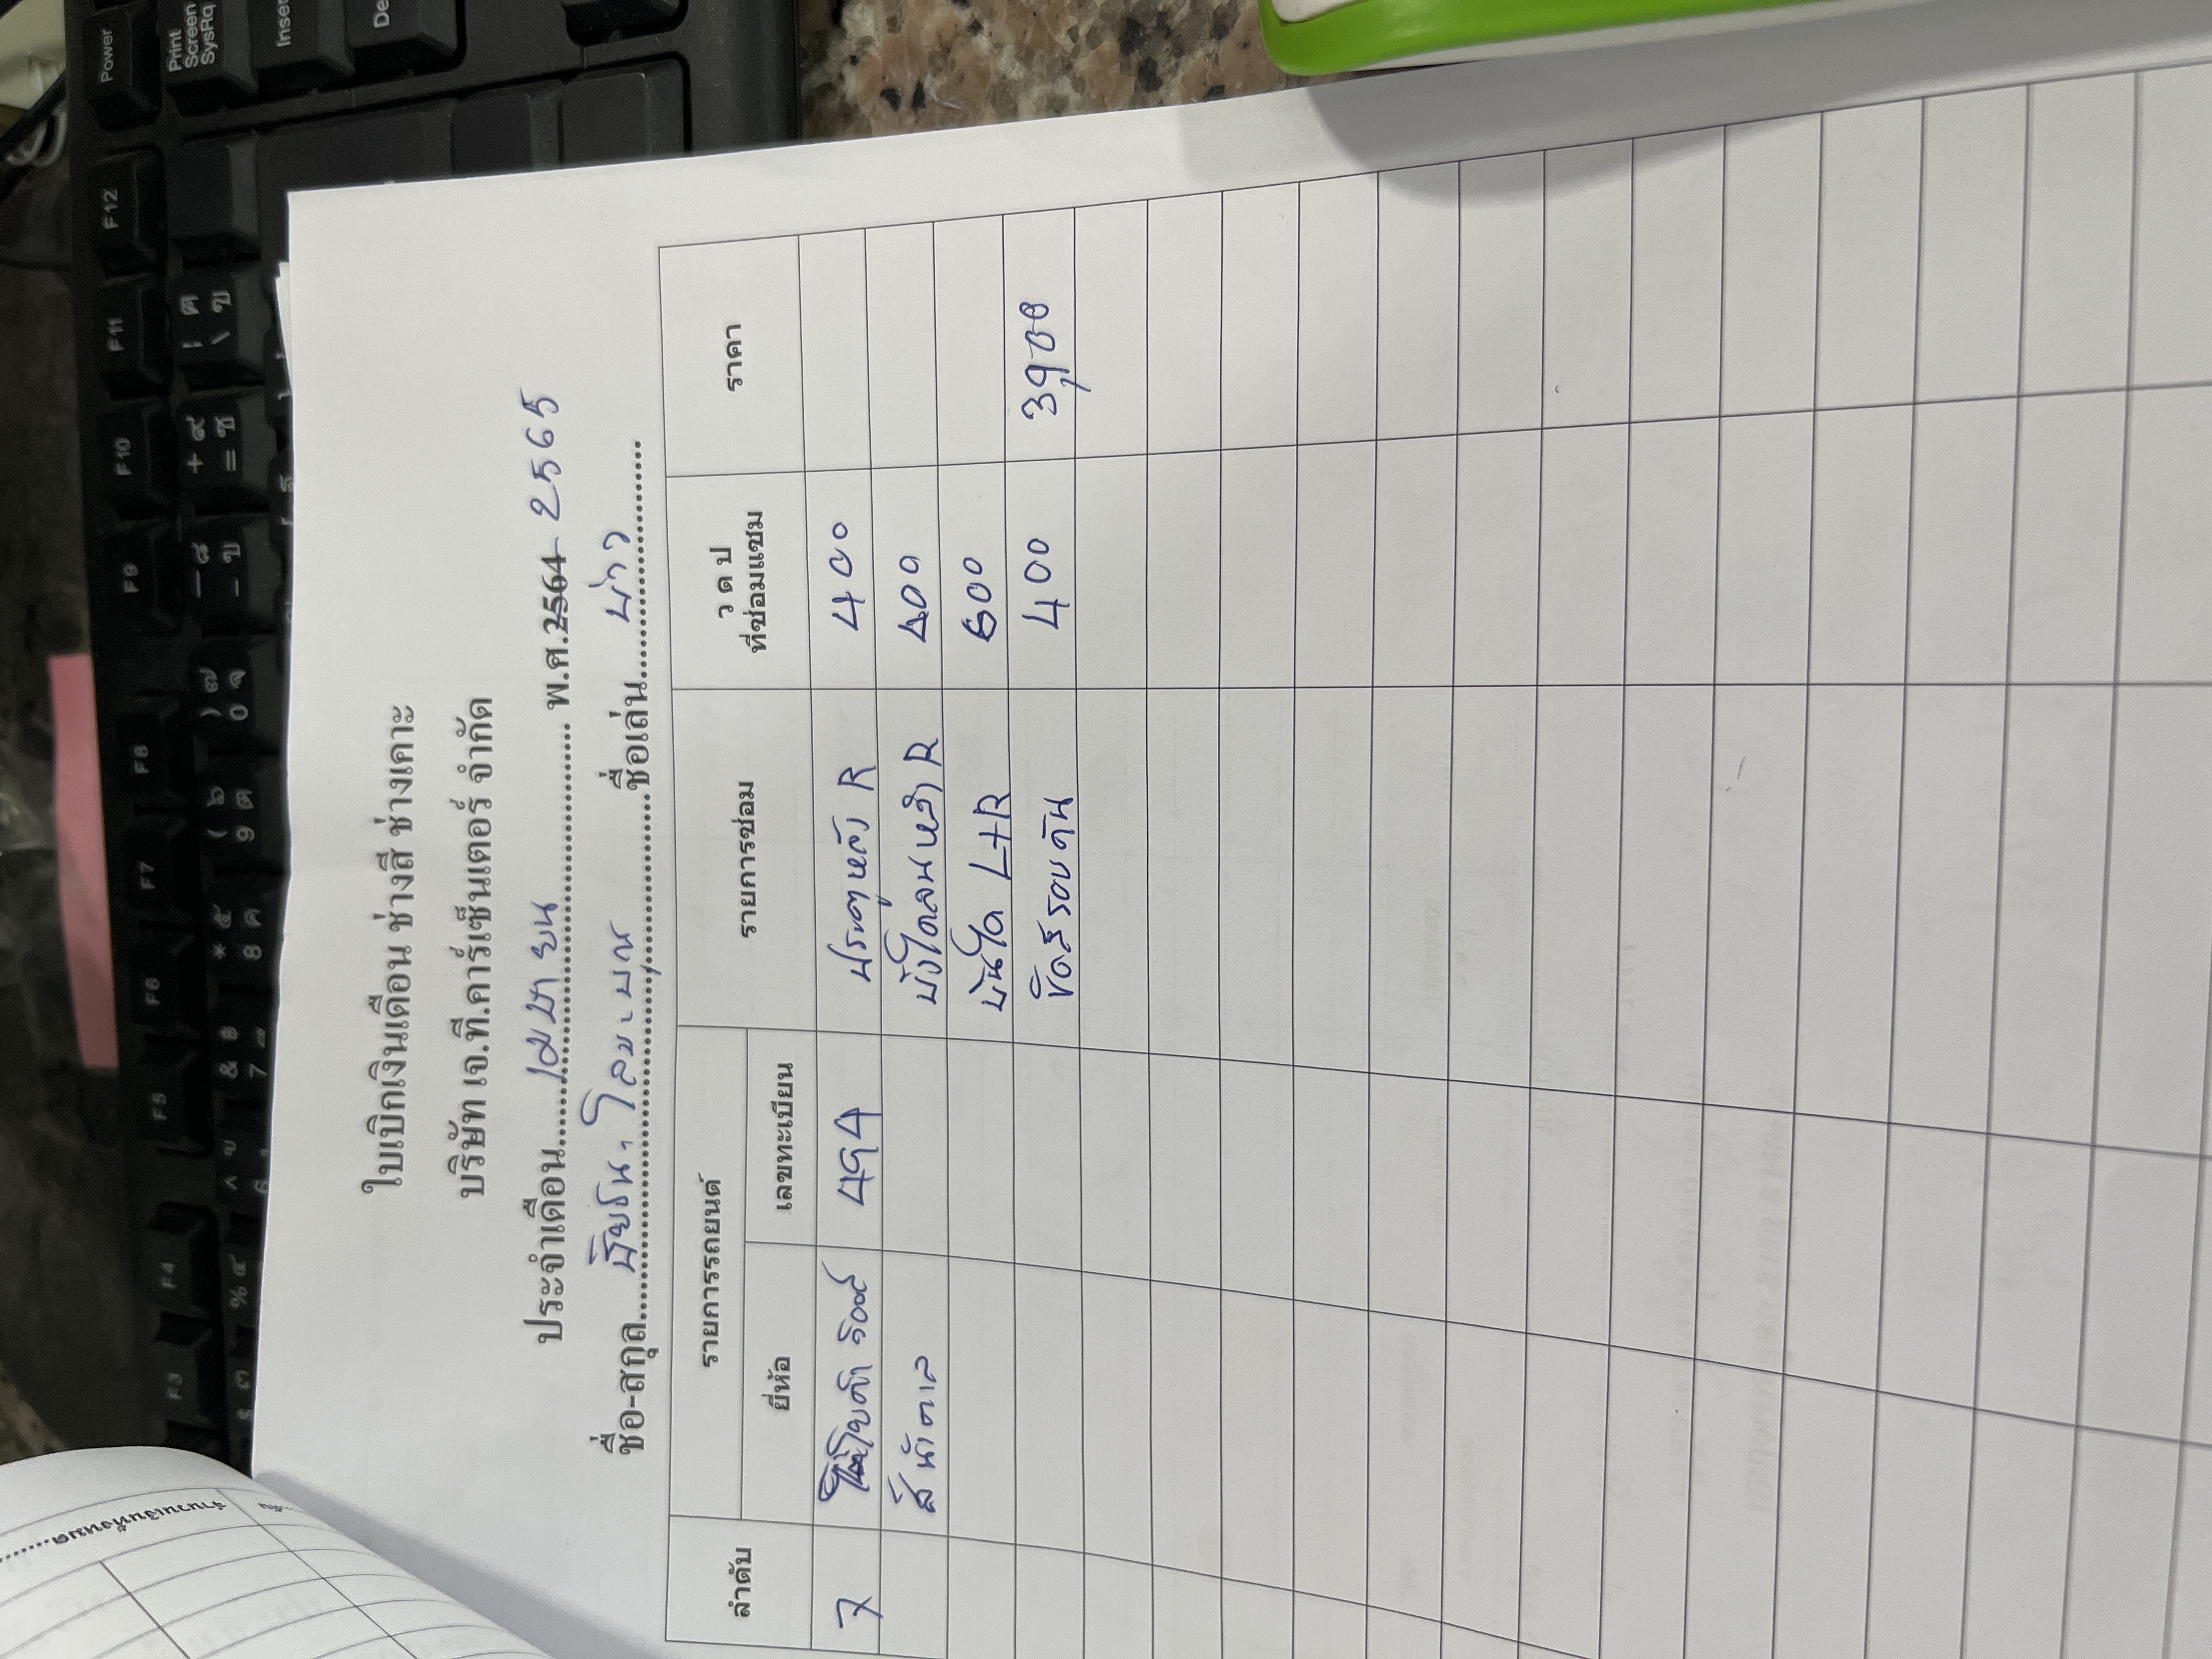 ใบเบิกเงินเดือน ช่างสี ช่างเคาะ
บริษัท เจ.ที.คาร์เซ็นเตอร์ จำกัด
ประจำเดือน....เมษายน.... พ.ศ.2564 2565
ชื่อ-สกุล.... ....ชื่อเล่น....บ่าว....
ลำดับ รายการรถยนต์ รายการซ่อม ว ด ป ที่ซ่อมแซม ราคา
ยี่ห้อ เลขทะเบียน
7 โตโยต้า วีออส 494 ประตูหลัง R 400
สีน้ำตาล บังโคลนหลัง R 400
บันได L+R 600
ขัดสีรอบคัน 400 3,900
Power
Print Screen SysRq
F12
F11
F10
F9
F8
F7
F6
F5
F4
F3